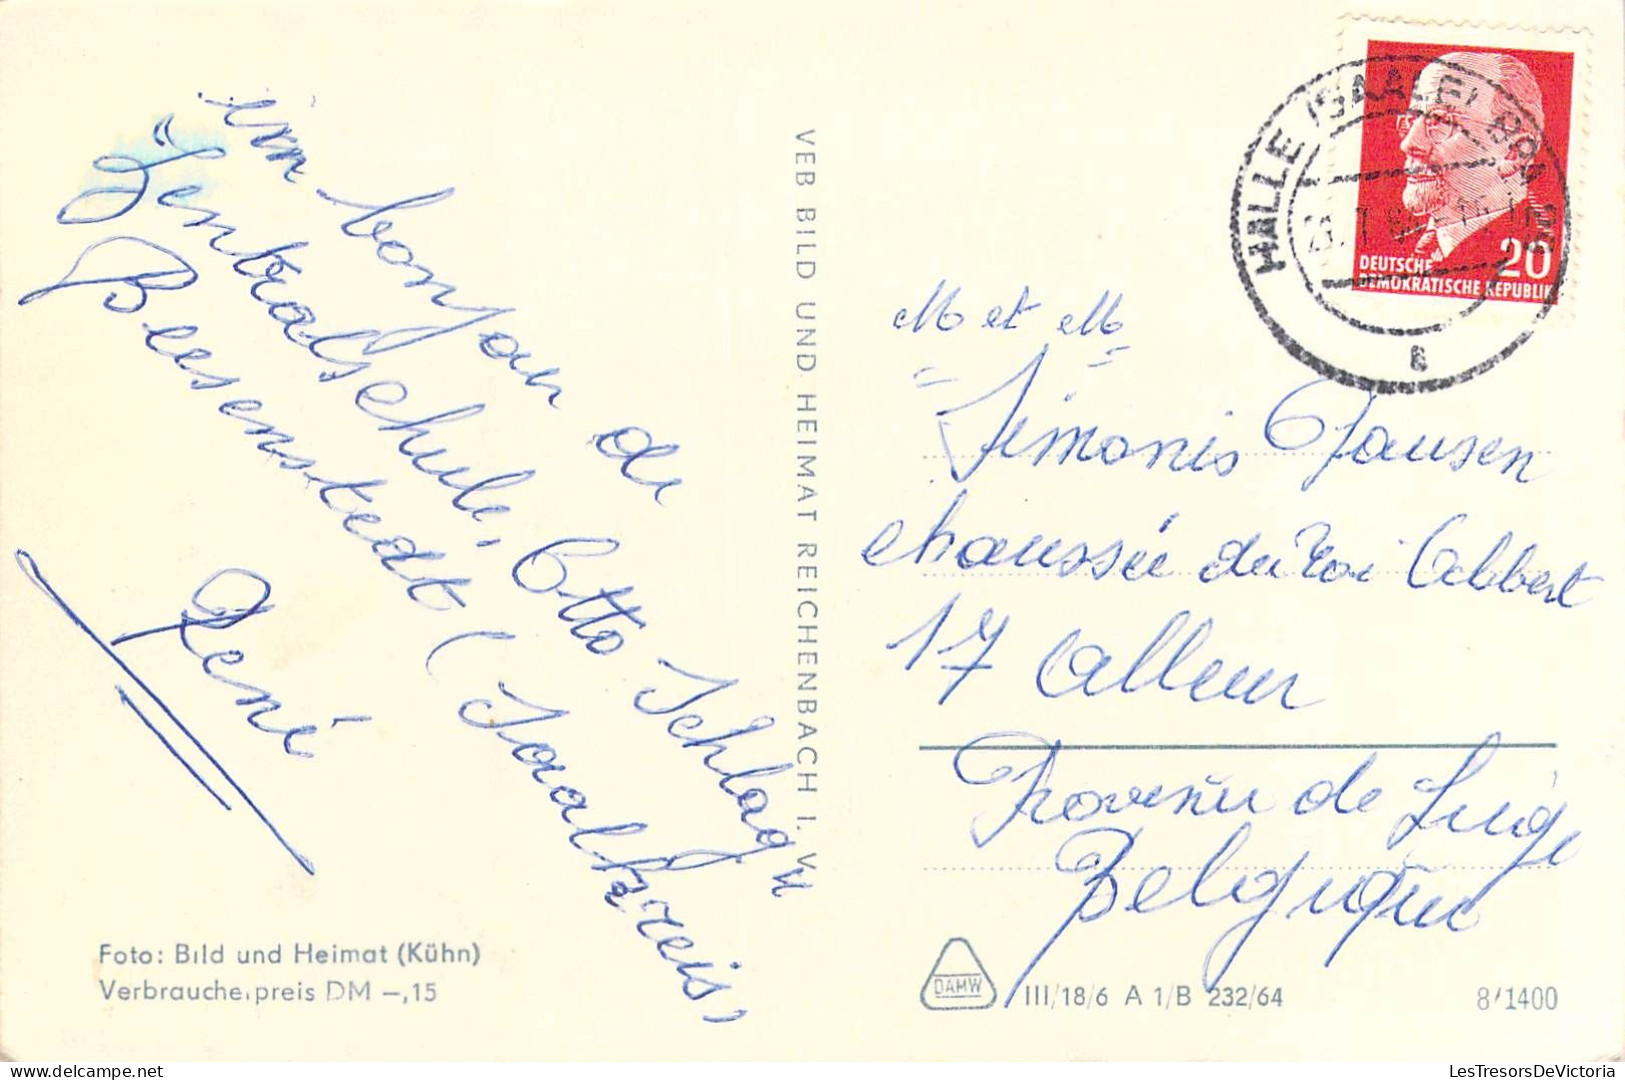 un bonjour de
"Zentralschule, Otto Schlag"
Beesenstedt (Saalkreis)
René
Foto: Bild und Heimat (Kühn)
Verbraucherpreis DM –,15
VEB BILD UND HEIMAT REICHENBACH I. V.
HALLE (SAALE)
20
DEUTSCHE
DEMOKRATISCHE REPUBLIK
M et M
Simonis Jausen
chaussée du roi Albert
17 Alleur
Province de Liège
Belgique
DAMW
III/18/6 A 1/B 232/64
8/1400
LesTresorsDeVictoria